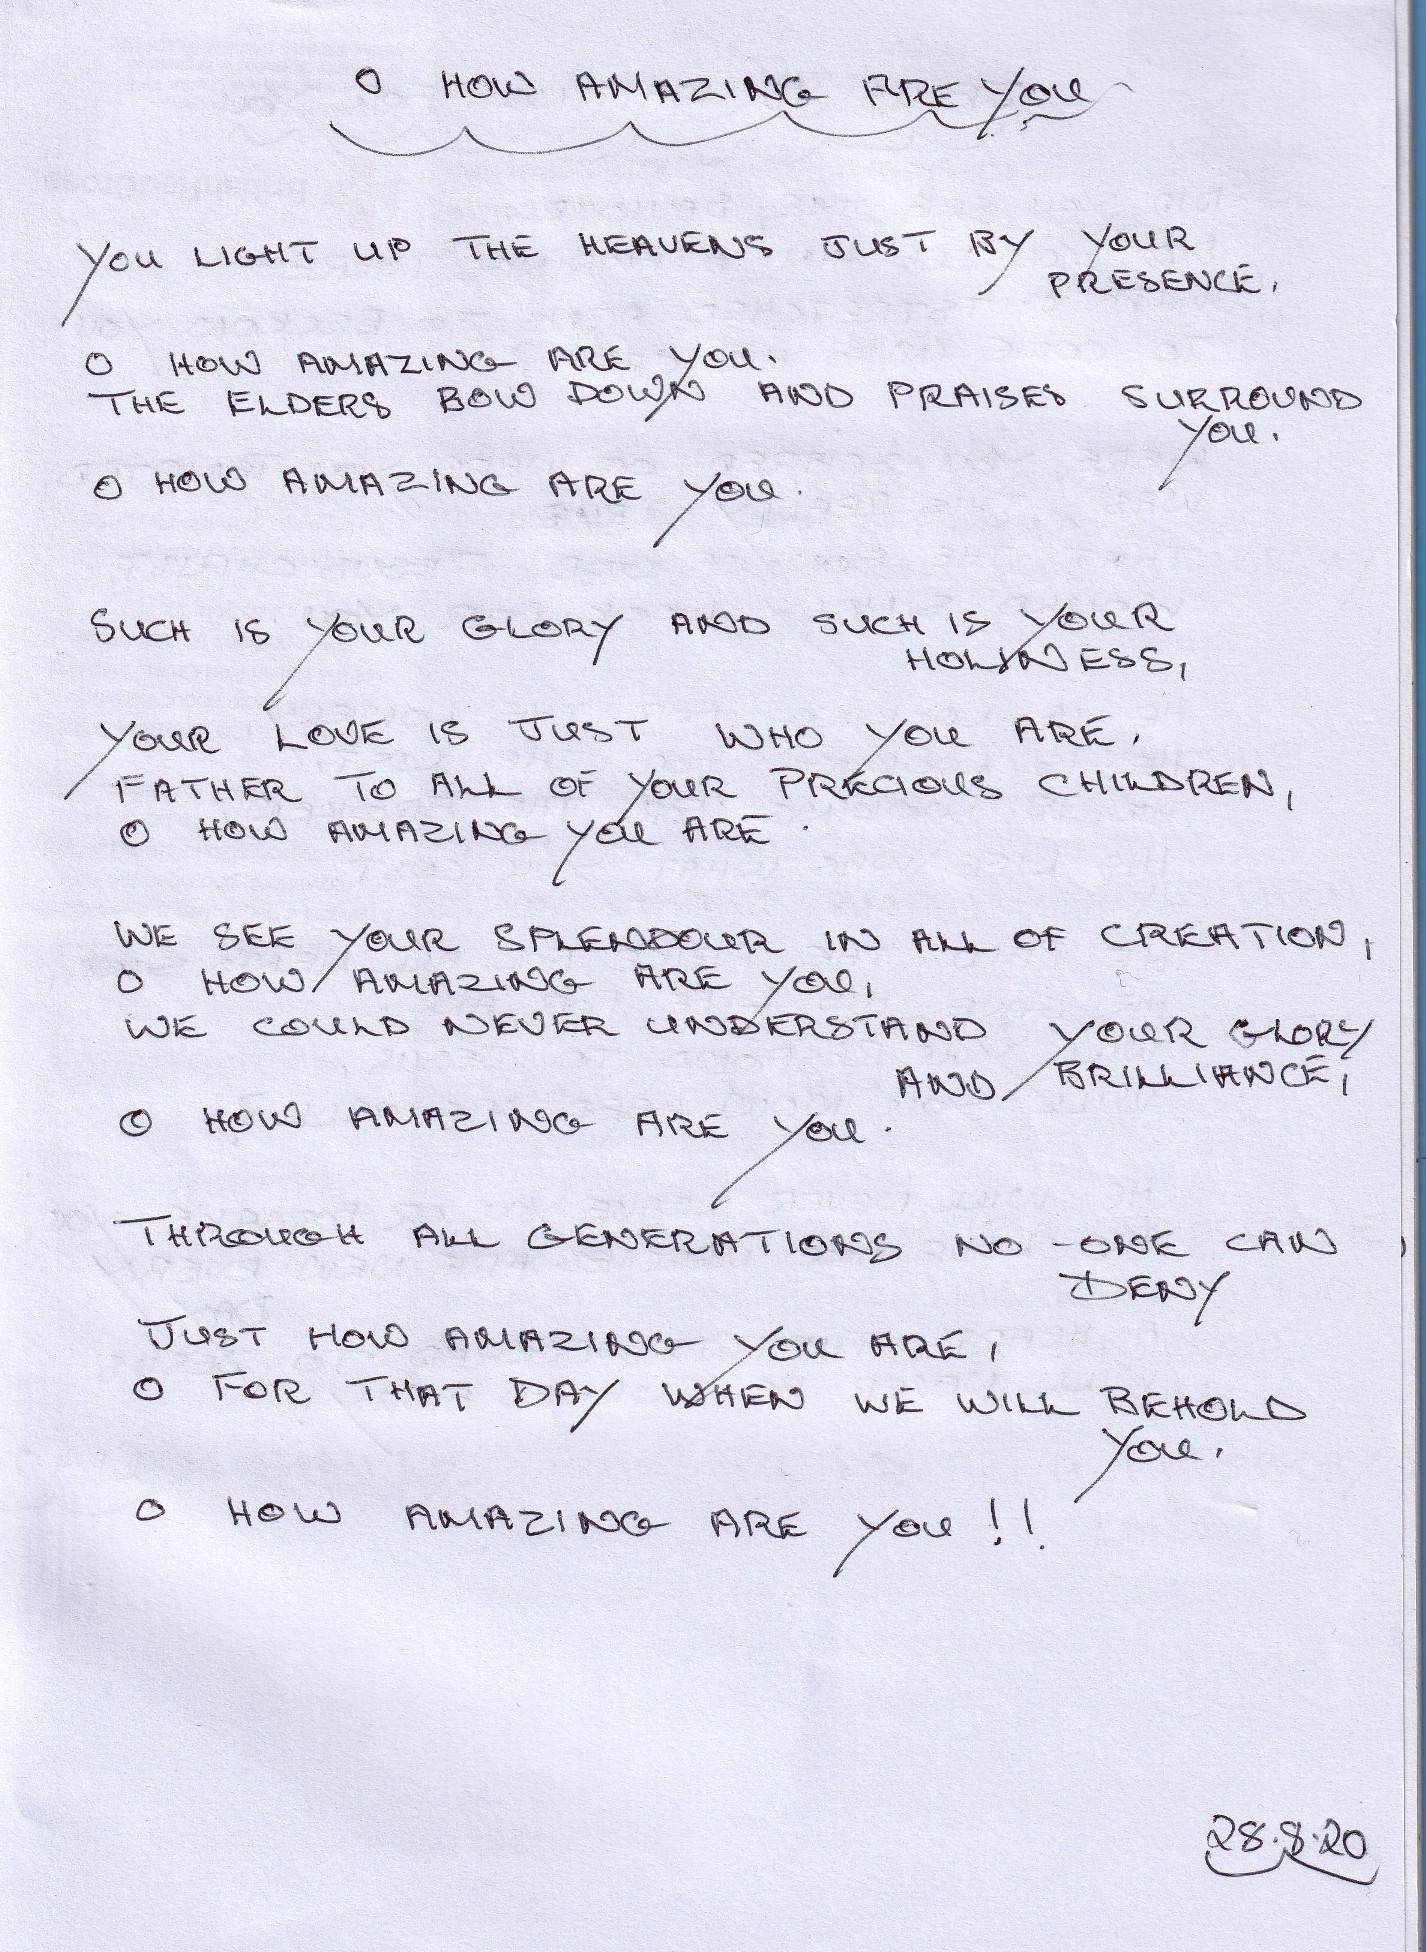 O HOW AMAZING ARE YOU
YOU LIGHT UP THE HEAVENS JUST BY YOUR
PRESENCE,
O HOW AMAZING ARE YOU.
THE ELDERS BOW DOWN AND PRAISES SURROUND
YOU.
O HOW AMAZING ARE YOU.
SUCH IS YOUR GLORY AND SUCH IS YOUR
HOLINESS,
YOUR LOVE IS JUST WHO YOU ARE,
FATHER TO ALL OF YOUR PRECIOUS CHILDREN,
O HOW AMAZING YOU ARE.
WE SEE YOUR SPLENDOUR IN ALL OF CREATION,
O HOW AMAZING ARE YOU,
WE COULD NEVER UNDERSTAND YOUR GLORY
AND BRILLIANCE,
O HOW AMAZING ARE YOU.
THROUGH ALL GENERATIONS NO-ONE CAN
DENY
JUST HOW AMAZING YOU ARE,
O FOR THAT DAY WHEN WE WILL BEHOLD
YOU.
O HOW AMAZING ARE YOU!!
28.8.20